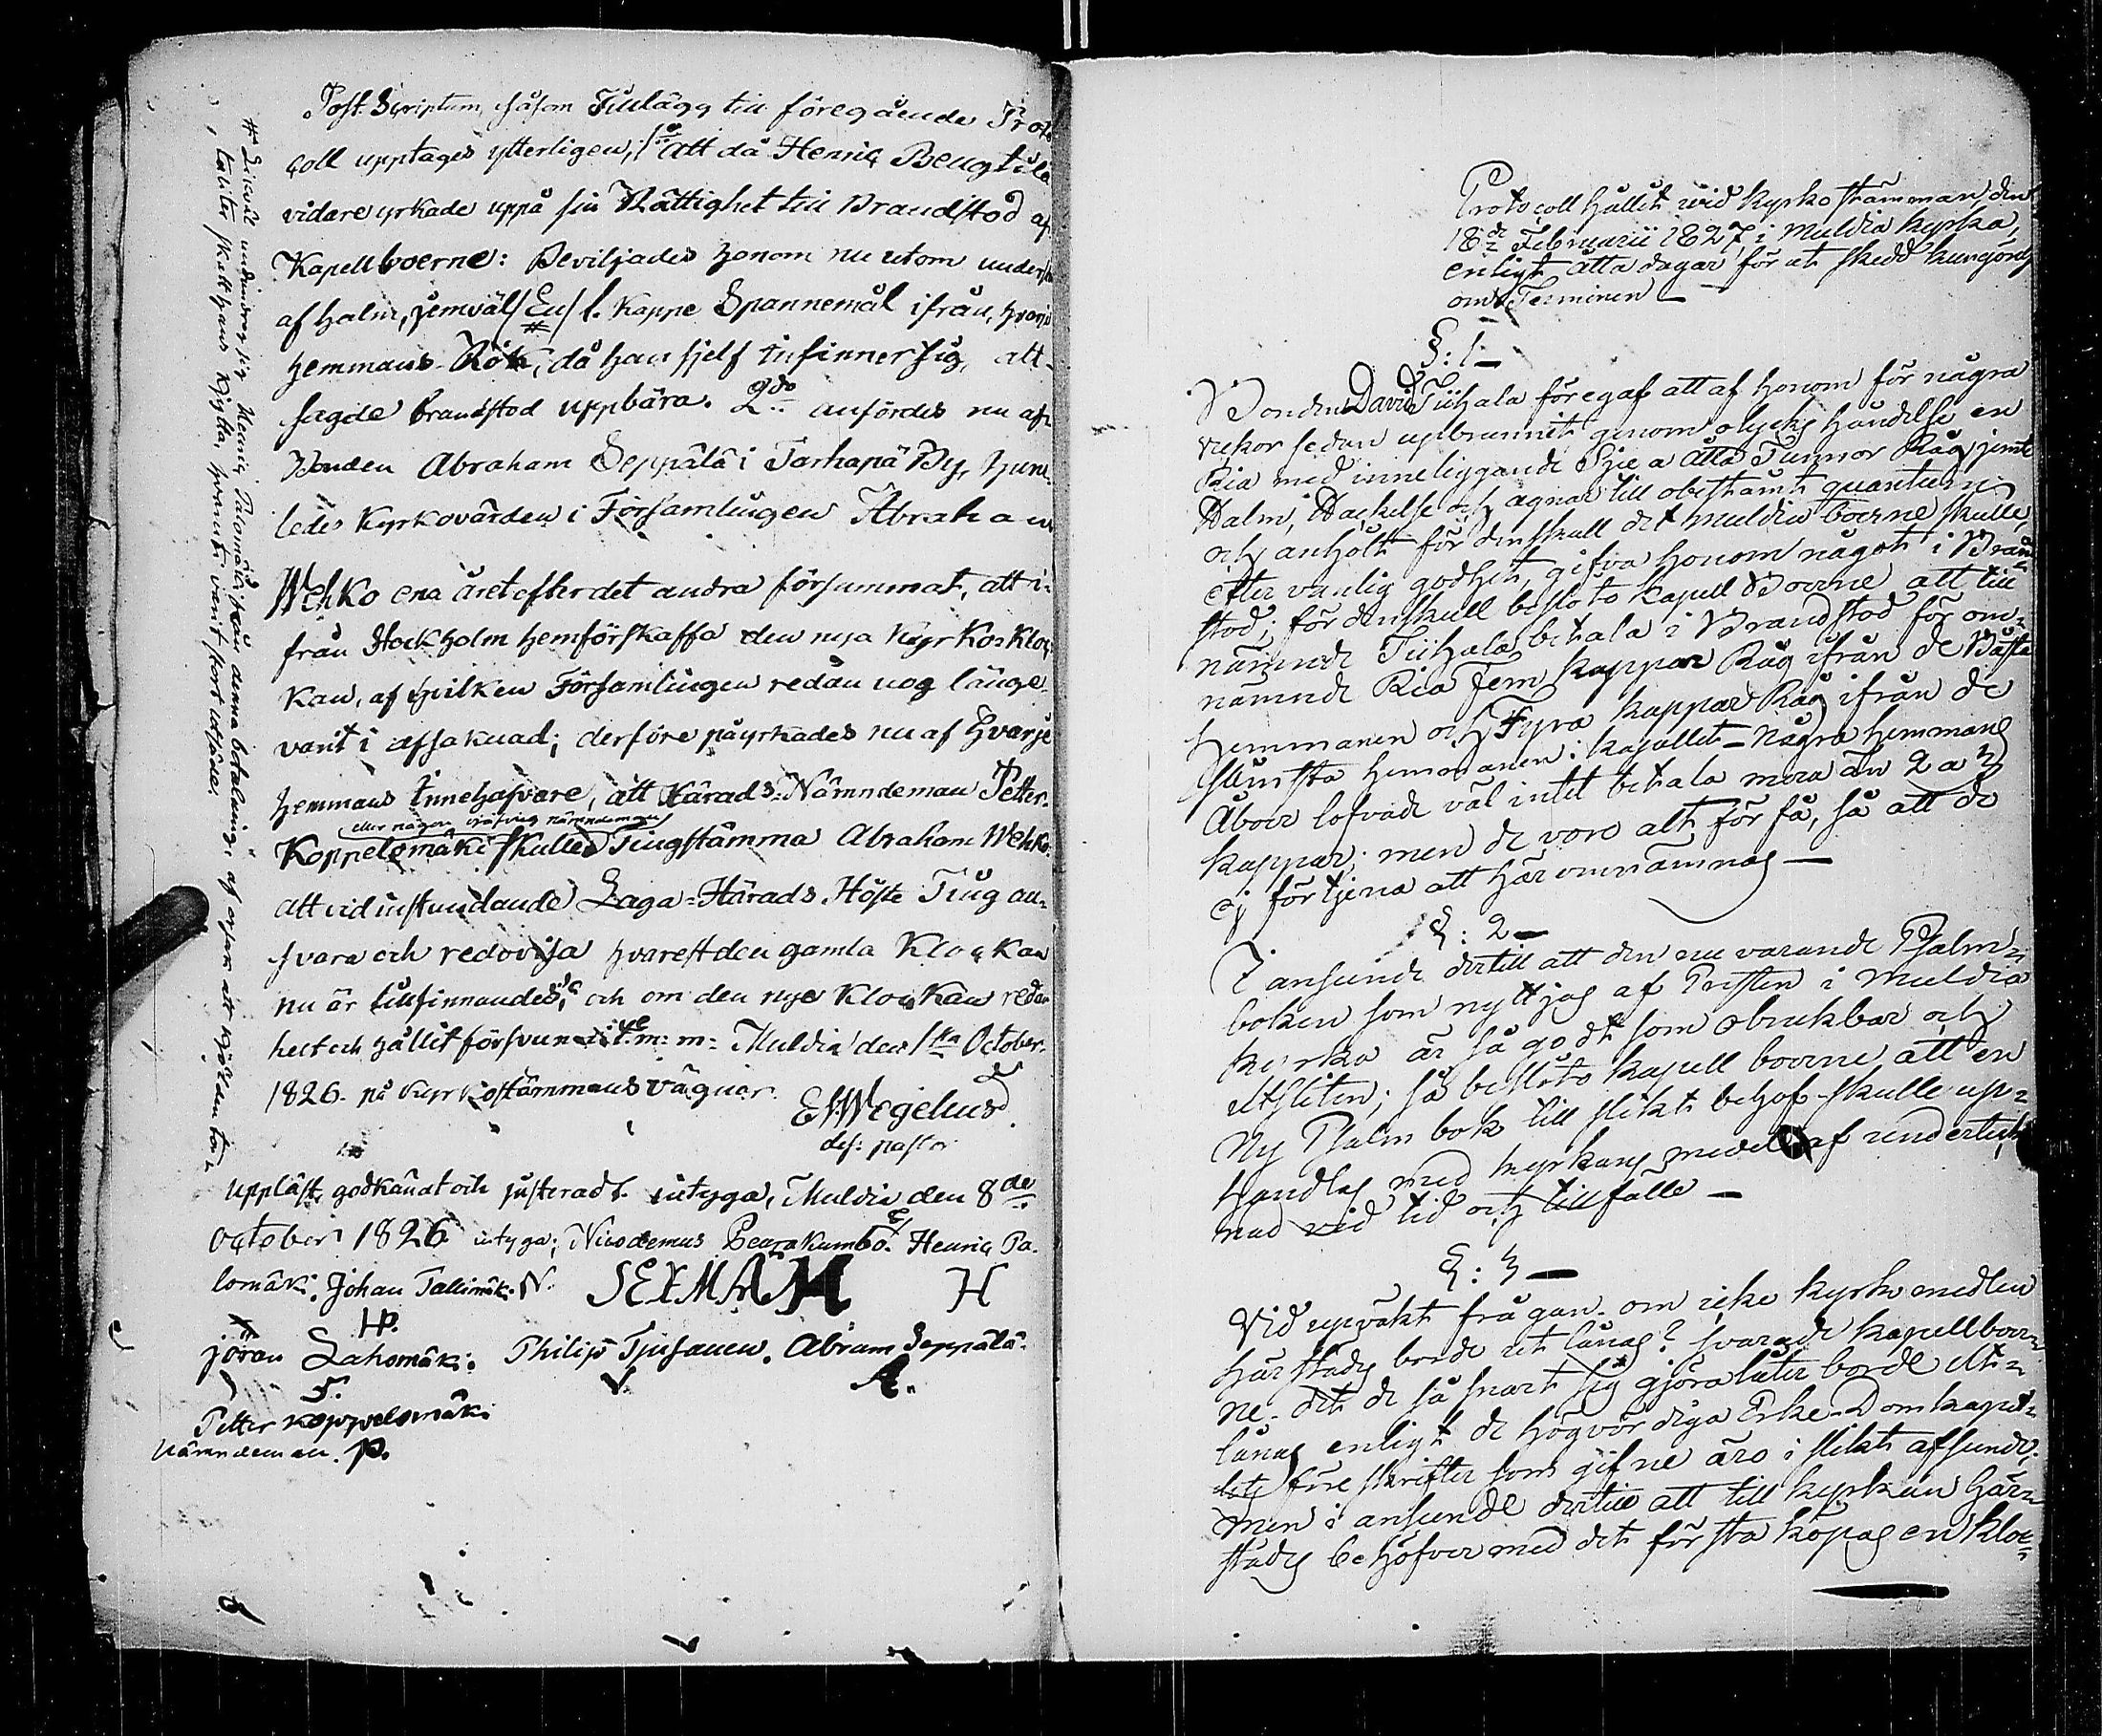 Post Scriptum, såsom Tillägg till föregående Proto
coll upptages ytterligen, 1o att då Henric Bengtilä
vidare yrkade uppå sin Rättighet till Brandstod af
Kapellboerne: Beviljades honom nu utom
af halm, jemväl /En/ 1. Kappe Spannemål ifrån, hvarje
hemmans Rök, då han sjelf infinner sig, att
sagde brandstod uppbära. 2do anfördes nu af
Bonden Abraham Seppälä i Tarhapä By, huru
ledes Kyrkovärden i Församlingen Abraham
Wehko ena året efter det andra försummat, att i-
från Stockholm hemförskaffa den nya Kyrkoskloc
kan, af hvilken Församlingen redan nog länge
varit i afsaknad; derföre påyrkades nu af hvarje
hemmans Innehafvare, att Härads-Nämndeman Petter
eller någon
Koppelomäki skulle Tingstämma Abraham Wehko
att vid instundande Laga-Härads Höste Ting an-
svara och redovisa hvarest den gamla Klockan
nu är tillfinnandes, och om den nya Klockan redan
helt och hållit försvunnit m: m: Muldia den 1sta October
1826. på Kyrkostämmans vägnar.
E. Wegelius
def: pastor
Uppläst, godkändt och justeradt. intyga, Muldia den 8de
October 1826 intyga; Nicodemus Peurakumbo. Henric Pa-
lomäki. Johan Tallimäki N. SEXMAN H
HP.
jöran Lahomäki. Philip Tjusanen. Abram Seppälä.
F. A.
Petter Koppelomäki
Nämndeman. P.
# Likväl undandrog sig Henric Palomäki från denna betalning, af orsak att
Protocoll hållit vid kyrkostämman den
18de Februarii 1827, i Muldia kyrka,
enligt åtta dagar förut skedd kungörelse
om Terminen —
§: 1 —
Bonden David Tiihala föregaf att af honom för några
vekor sedan upbrunnit genom olycks händelse en
Ria med inneliggande Sju a åtta Tunnor Råg jemte
Halm, Hackelse och agnar till obestämt quantum
och anhölt för den skull det Muldia boerne skulle
efter vanlig godhet, gifva honom något i Brand
stod; för den skull besloto Kapell Boerne att till
nämnde Tiihala betala i Brandstod för om-
nämnde Ria Fem kappar Råg ifrån de Bästa
Hemmanen och Fyra kappar Råg ifrån de
sämsta hemmanen i kapellet — Några hemmans
Åboer lofvade väl intet betala mera än 2 a 3
kappar; men de voro alt för få, så att de
ej förtjena att här omnämnas —
§: 2 —
I anseende dertill att den nu varande Psalm-
boken som nyttjas af Presten i Muldia
kyrka är så godt som obrukbar och
utsliten; så besloto kapell boerne att en
Ny Psalm bok till slikt behof skulle up-
handlas med kyrkans medel af undertech
nad vid tid och tillfälle —
§: 3 —
Vid upväkt frågan om icke kyrko medlen
härstädes borde ut lånas? svarade kapellboer-
ne det de så snart sig göra låter borde ut-
lånas enligt de högvördiga Erke-Domkapit-
lets föreskrifter som gifne äro i slikt afseende
men i anseende dertill att till kyrkan här-
städes behöfver med det första köpas en kloc-